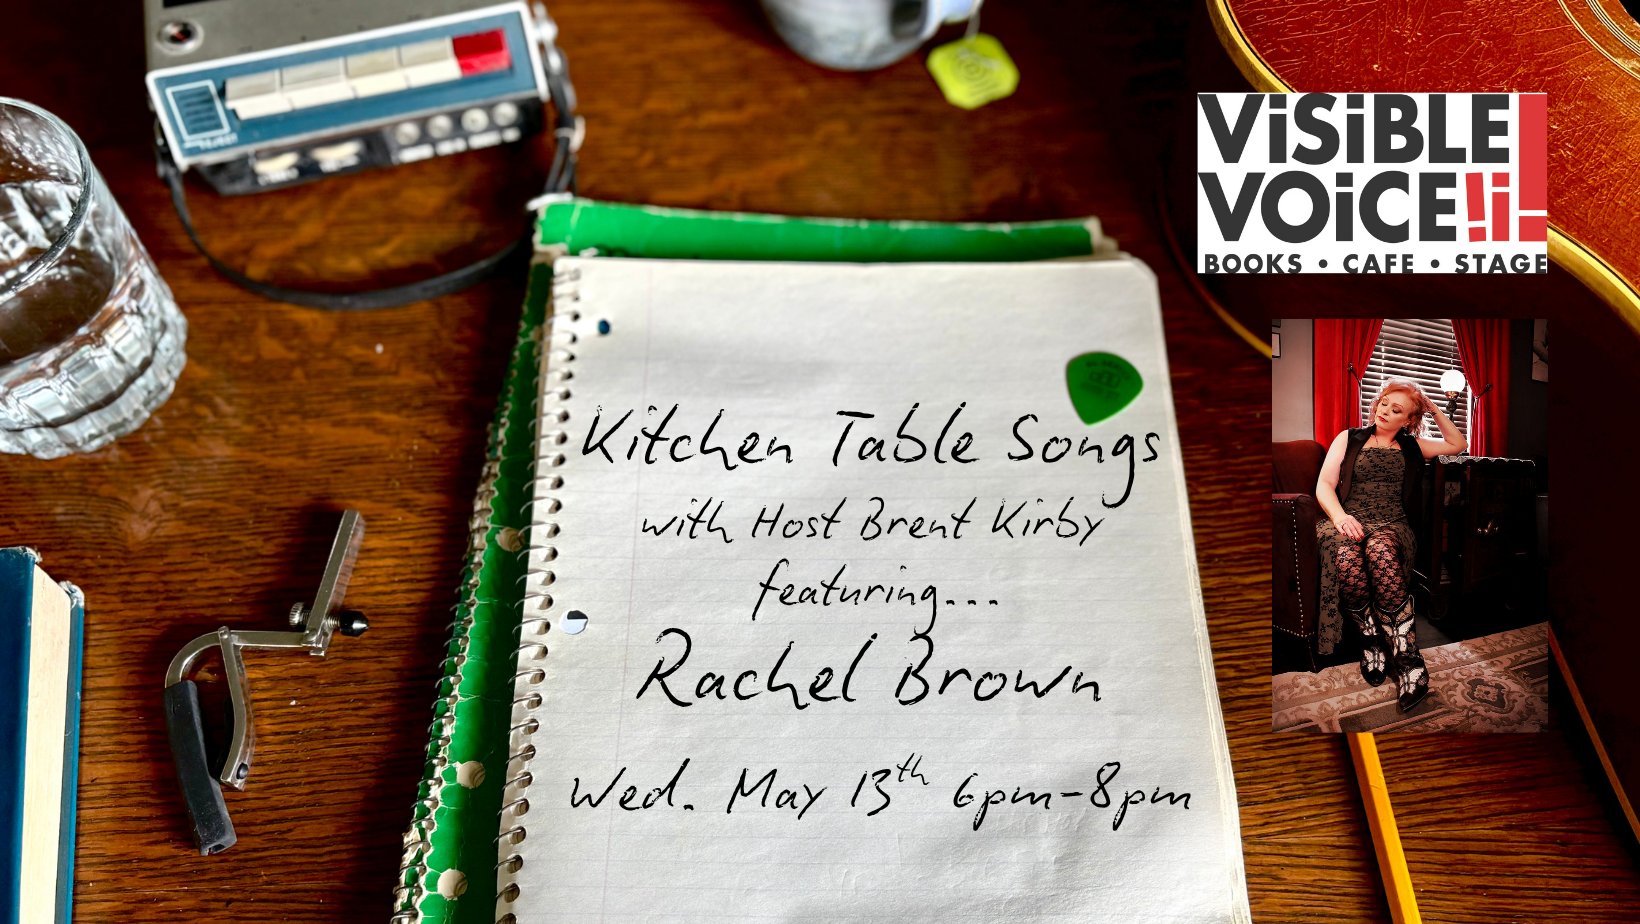 ViSiBLE
VOiCE!i!
BOOKS • CAFE • STAGE
Kitchen Table Songs
with Host Brent Kirby
featuring...
Rachel Brown
Wed. May 13th 6pm-8pm